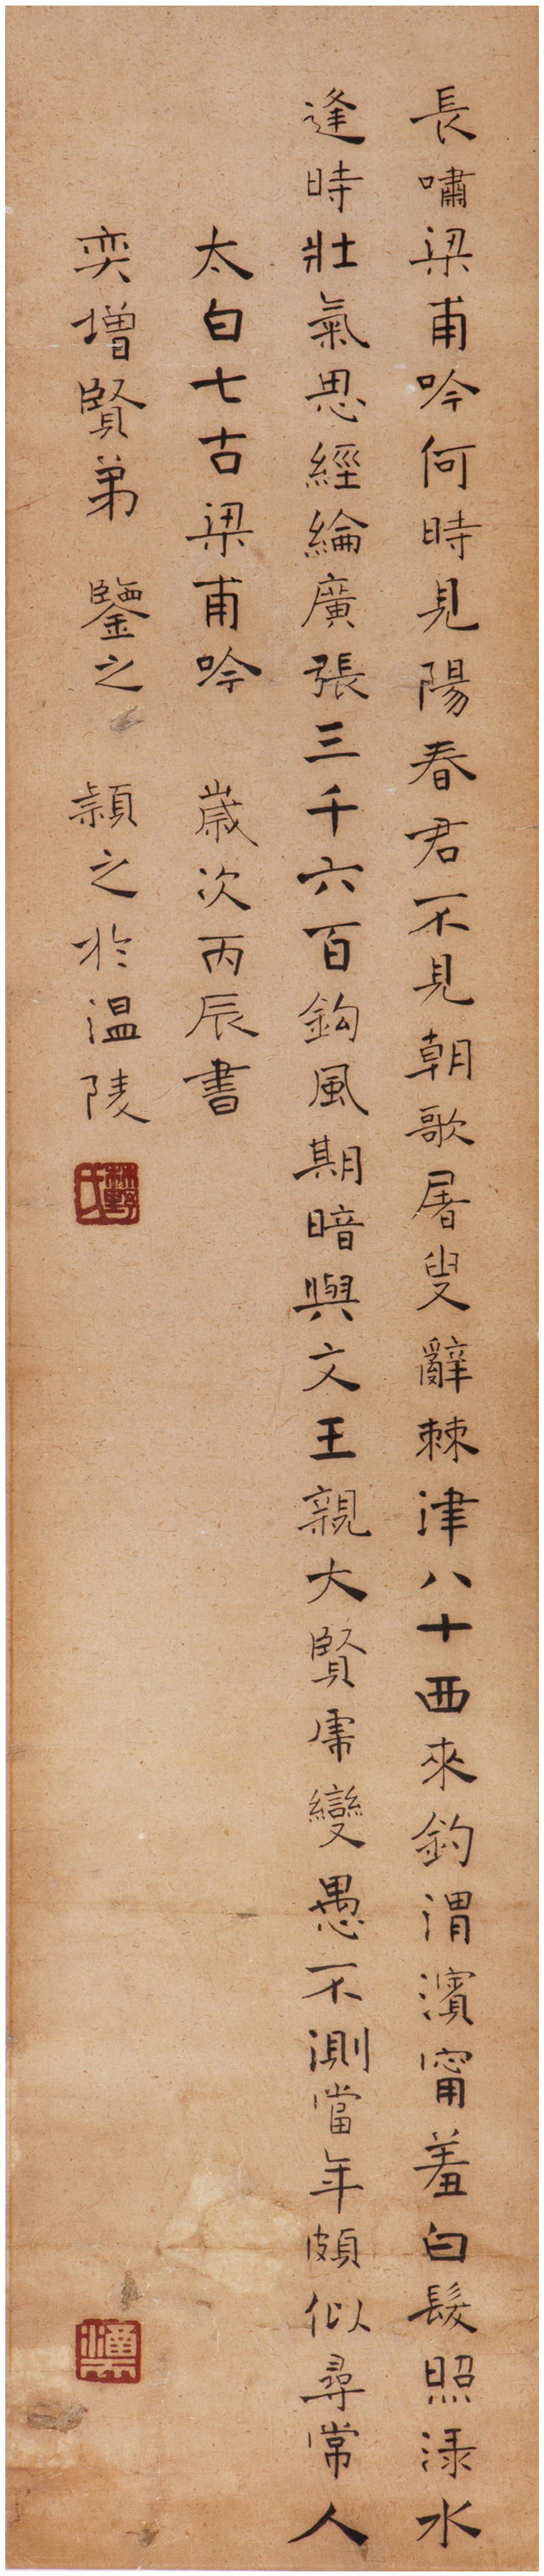 長嘯梁甫吟何時見陽春君不見朝歌屠叟辭棘津八十西來釣渭濱甯羞白髮照渌水
逢時壯氣思經綸廣張三千六百鈎風期暗與文王親大賢虎變愚不測當年頗似尋常人
太白七古梁甫吟 歲次丙辰書
奕增賢弟 鑒之 穎之於溫陵